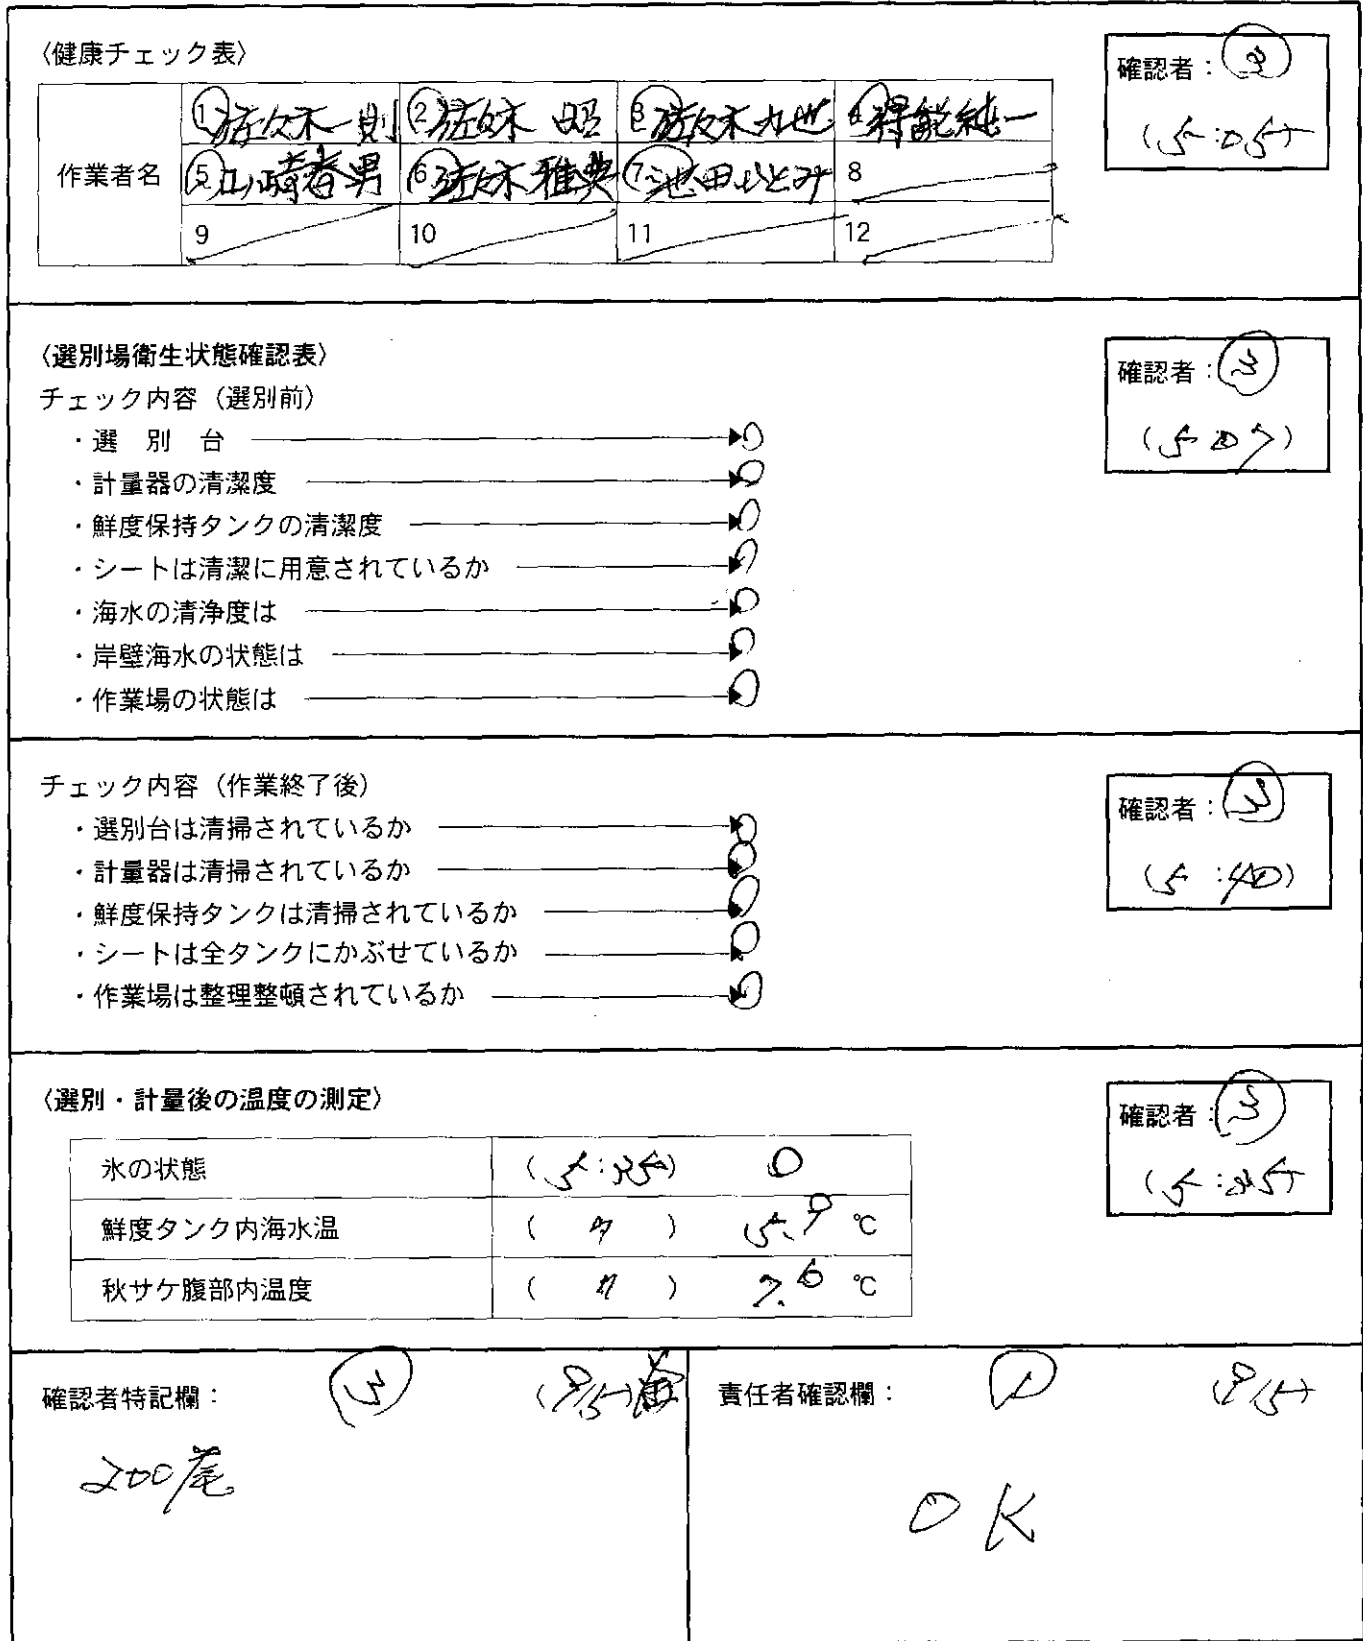 〈健康チェック表〉
確認者：③
(5:05)
作業者名
①佐々木一則 ②佐々木 昭 ③佐々木九也 ④得能純一
⑤山崎春男 ⑥佐々木雅典 ⑦池田ひとみ 8
9 10 11 12
〈選別場衛生状態確認表〉
確認者：③
(5 07)
チェック内容（選別前）
・選 別 台 ○
・計量器の清潔度 ○
・鮮度保持タンクの清潔度 ○
・シートは清潔に用意されているか ○
・海水の清浄度は ○
・岸壁海水の状態は ○
・作業場の状態は ○
チェック内容（作業終了後）
確認者：③
(5:40)
・選別台は清掃されているか ○
・計量器は清掃されているか ○
・鮮度保持タンクは清掃されているか ○
・シートは全タンクにかぶせているか ○
・作業場は整理整頓されているか ○
〈選別・計量後の温度の測定〉
確認者：③
(5:35)
氷の状態 (5:35) ○
鮮度タンク内海水温 ( 〃 ) 5.9 ℃
秋サケ腹部内温度 ( 〃 ) 7.6 ℃
確認者特記欄： ③ (9/5)
200尾
責任者確認欄： ① (9/5)
OK